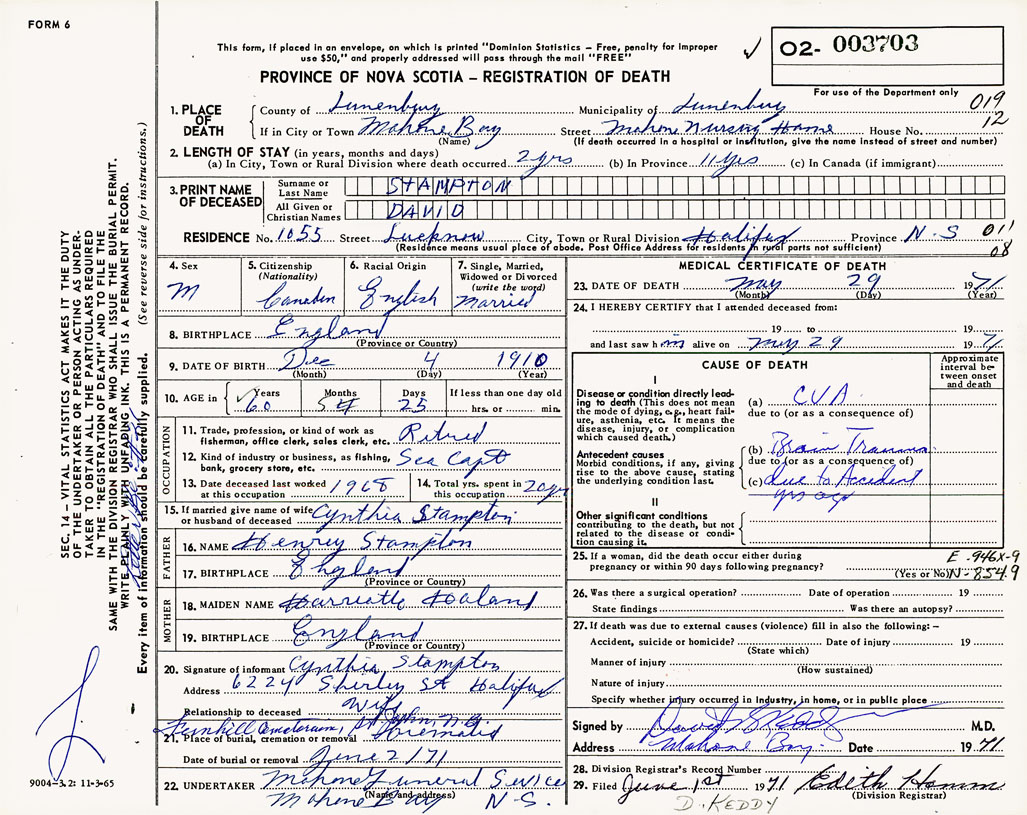 FORM 6
This form, if placed in an envelope, on which is printed "Dominion Statistics – Free, penalty for improper
use $50," and properly addressed will pass through the mail "FREE"
✓ O2- 003703
PROVINCE OF NOVA SCOTIA – REGISTRATION OF DEATH
For use of the Department only
019
12
1. PLACE OF DEATH
County of Lunenburg Municipality of Lunenburg
If in City or Town Mahone Bay Street Mahone Nursing Home House No.
(Name) (If death occurred in a hospital or institution, give the name instead of street and number)
2. LENGTH OF STAY (in years, months and days)
(a) In City, Town or Rural Division where death occurred 2 yrs (b) In Province 11 yrs (c) In Canada (if immigrant)
3. PRINT NAME OF DECEASED
Surname or Last Name STAMPTON
All Given or Christian Names DAVID
RESIDENCE No. 1055 Street Lucknow City, Town or Rural Division Halifax Province N-S 011
(Residence means usual place of abode. Post Office Address for residents in rural parts not sufficient) 08
4. Sex M
5. Citizenship (Nationality) Canaden
6. Racial Origin English
7. Single, Married, Widowed or Divorced (write the word) Married
8. BIRTHPLACE England
(Province or Country)
9. DATE OF BIRTH Dec 4 1910
(Month) (Day) (Year)
10. AGE in Years 60 Months 5 Days 25 If less than one day old hrs. or min.
OCCUPATION
11. Trade, profession, or kind of work as fisherman, office clerk, sales clerk, etc. Ritred
12. Kind of industry or business, as fishing, bank, grocery store, etc. Sea Capt
13. Date deceased last worked at this occupation 1968
14. Total yrs. spent in this occupation 20 yrs
15. If married give name of wife or husband of deceased Cynthia Stampton
FATHER
16. NAME Henrey Stampton
17. BIRTHPLACE England
(Province or Country)
MOTHER
18. MAIDEN NAME Harriatte Holand
19. BIRTHPLACE England
(Province or Country)
20. Signature of informant Cynthia Stampton
Address 6224 Shirley St Halifax
Relationship to deceased Wife
Fernhill Crematorium, St. John, N.B.
21. Place of burial, cremation or removal Cremated
Date of burial or removal June 2/71
22. UNDERTAKER Mahone Funeral Service
(Name and address)
Mahone Bay N-S.
MEDICAL CERTIFICATE OF DEATH
23. DATE OF DEATH May 29 1971
(Month) (Day) (Year)
24. I HEREBY CERTIFY that I attended deceased from:
19 to 19
and last saw him alive on May 29 1971
CAUSE OF DEATH
Approximate interval between onset and death
I
Disease or condition directly leading to death (This does not mean the mode of dying, e.g., heart failure, asthenia, etc. It means the disease, injury, or complication which caused death.)
(a) CVA
due to (or as a consequence of)
Antecedent causes
Morbid conditions, if any, giving rise to the above cause, stating the underlying condition last.
(b) Brain Trauma
due to (or as a consequence of)
(c) due to Accident
yrs ago
II
Other significant conditions contributing to the death, but not related to the disease or condition causing it.
25. If a woman, did the death occur either during pregnancy or within 90 days following pregnancy? (Yes or No)
E-946X-9
N-854.9
26. Was there a surgical operation? Date of operation 19
State findings Was there an autopsy?
27. If death was due to external causes (violence) fill in also the following: –
Accident, suicide or homicide? Date of injury 19
(State which)
Manner of injury
(How sustained)
Nature of injury
Specify whether injury occurred in industry, in home, or in public place
Signed by David S Keddy M.D.
Address Mahone Bay. Date 1971
28. Division Registrar's Record Number
29. Filed June 1st 1971 Edith Hamm
(Division Registrar)
D. KEDDY
SEC. 14 – VITAL STATISTICS ACT MAKES IT THE DUTY
OF THE UNDERTAKER OR PERSON ACTING AS UNDER-
TAKER TO OBTAIN ALL THE PARTICULARS REQUIRED
IN THE "REGISTRATION OF DEATH" AND TO FILE THE
SAME WITH THE DIVISION REGISTRAR WHO SHALL ISSUE THE BURIAL PERMIT.
WRITE PLAINLY WITH UNFADING INK. THIS IS A PERMANENT RECORD.
Every item of information should be carefully supplied. (See reverse side for instructions.)
9004-3.2: 11-3-65